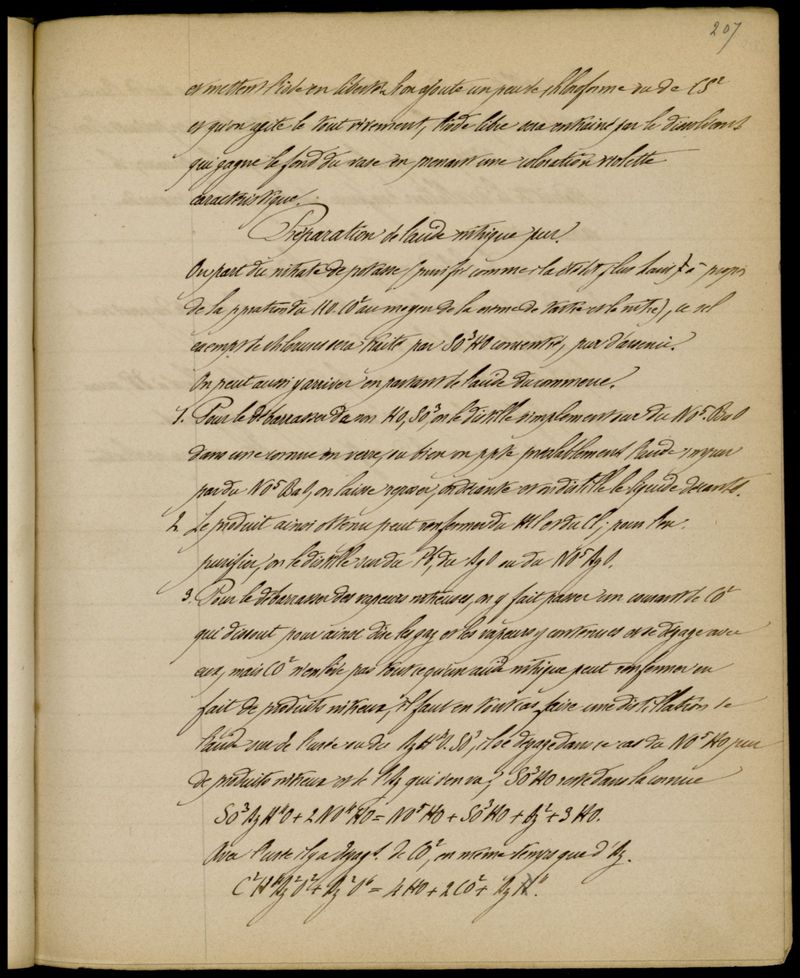 207
et mettent l'iode en liberté. Si on ajoute un peu de chloroforme ou de CS²
et qu'on agite le tout vivement, l'iode libre sera entrainé par le dissolvant
qui gagne le fond du vase en prenant une coloration violette
caractéristique.
Préparation de l'acide nitrique pur.
On part du nitrate de potasse (purifié comme il a été dit plus haut à propos
de la pption du KO.CO² au moyen de la crème de tartre et le nitre), ce sel
exempt de chlorures sera traité par SO³HO concentré, pur d'arsenic.
On peut aussi y arriver en partant de l'acide du commerce.
1. Pour le débarrasser de son HO,SO³, on le distille simplement sur du NO⁵.BaO
dans une cornue en verre, ou bien on ppte préalablement l'acide
par du NO⁵BaO, on laisse reposer, on décante et on distille le liquide décanté.
2. Le produit ainsi obtenu peut renfermer du HCl et du Cl; pour l'en
purifier, on le distille sur du Pb, du AgO ou du NO⁵AgO.
3. Pour le débarrasser des vapeurs nitreuses, on y fait passer un courant de CO²
qui dissout pour ainsi dire les gaz et les vapeurs y contenues et se dégage avec
eux, mais CO² n'enlève pas tout ce qu'un acide nitrique peut renfermer en
fait de produits nitreux, il faut en tout cas faire une distillation de
l'acide sur de l'urée ou du AzH⁴O.SO³, il se dégage dans ce cas du NO⁵HO pur
de produits nitreux et le Az qui s'en va, SO³HO reste dans la cornue
SO³AzH⁴O + 2NO⁴HO = NO⁵HO + SO³HO + Az² + 3HO.
Avec l'urée il y a dégagt. de CO², en même temps que d'Az.
C²H⁴Az²O² + Az²O⁶ = 4HO + 2CO² + Az⁴.